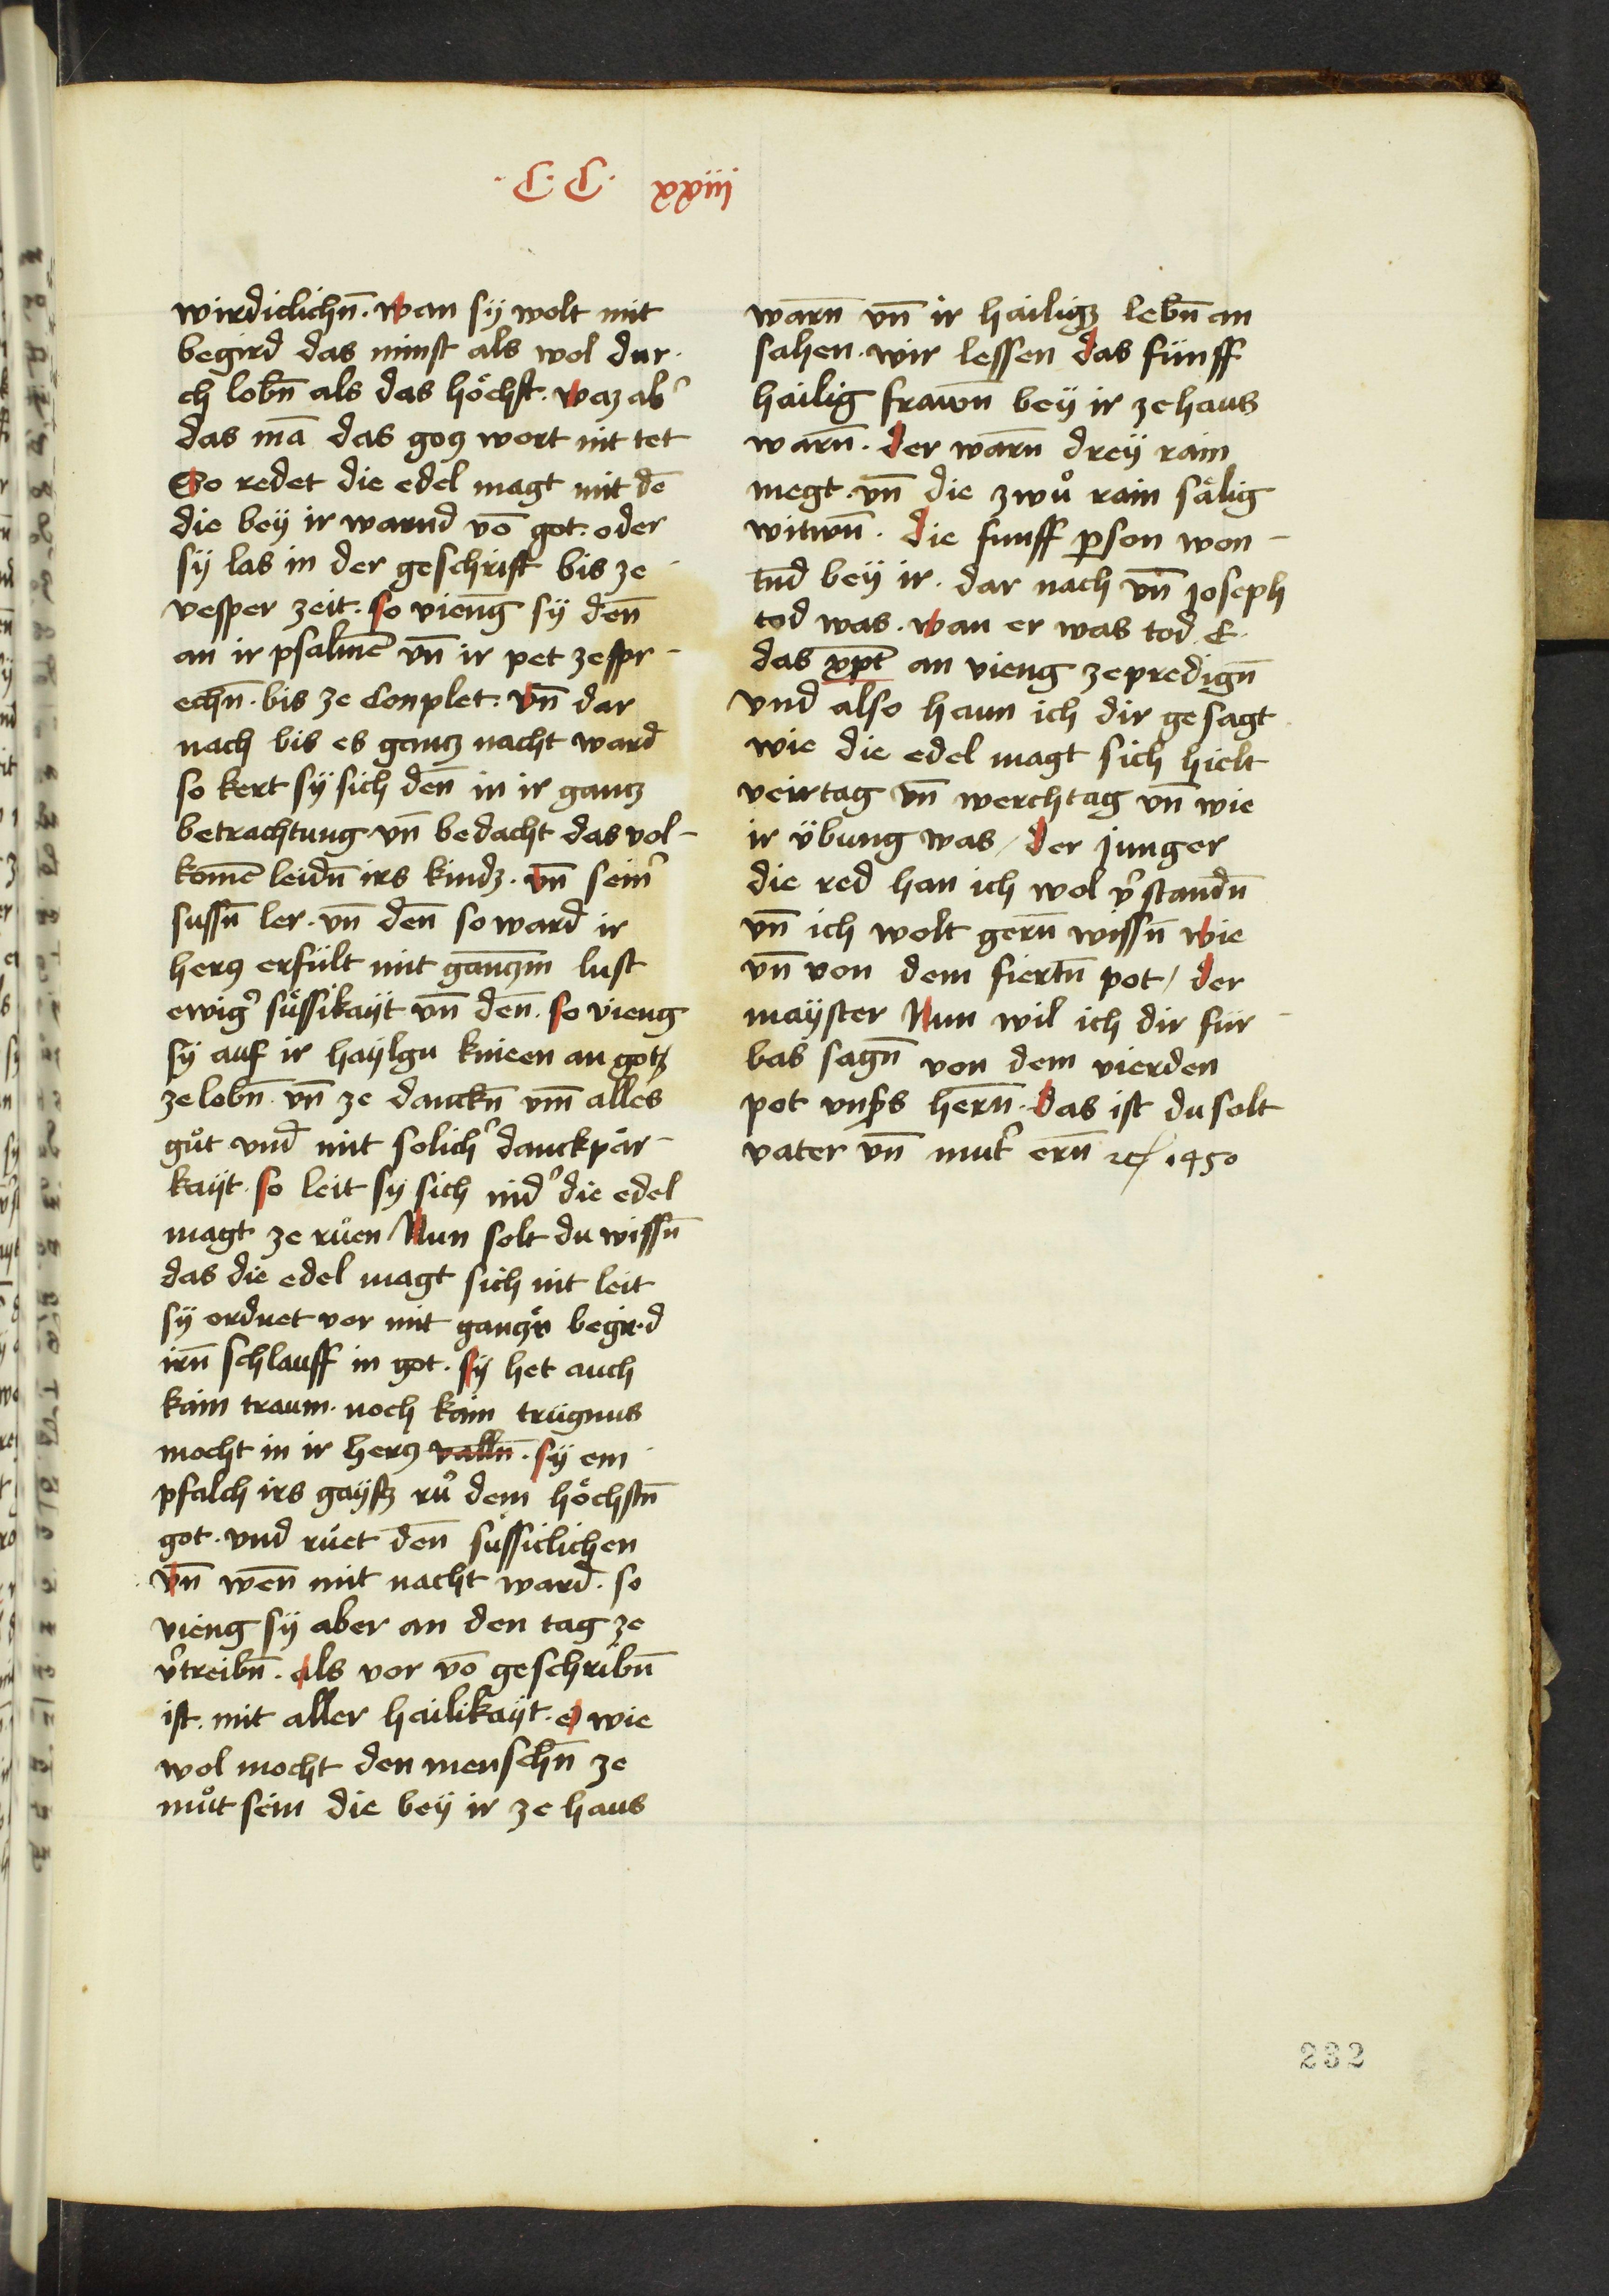 ·C·C· xxiiij
wirdiclichn̄. wan sy wolt mit
begird das minst als wol dur-
ch lobn̄ als das höchst. waz ab̛
das mā das gocz wort nit tet
So redet die edel magt mit dē
die bey ir warnd vō got. oder
sy las in der geschrift bis ze
vesper zeit. so vieng sy den̄
an ir psalmē vn̄ ir pet ze spr-
echn̄. bis ze Conplet. vn̄ dar
nach bis es gantz nacht ward
so kert sy sich den̄ in ir gantz
betrachtung vn̄ bedacht das vol-
komē leidn̄ irs kindz. vn̄ sein̛
sussn̄ ler. vn̄ den̄ so ward ir
hercz erfült mit ganczm̄ lust
ewig̛ süssikayt vn̄ den̄. so vieng
sy auf ir haylgn knieen an gotz
ze lobn̄ vn̄ ze danckn̄ vm̄ alles
gůt vnd mit solich̛ danckpär-
kayt. so leit sy sich nid̛ die edel
magt ze růen / Nun solt du wissn̄
das die edel magt sich nit leit
sy ordnet vor mit ganczn̄ begird
irn̄ schlauff in got. sy het auch
kain traum. noch kain trügnus
mocht in ir hercz valln̄. sy em
pfalch irs gaystz rů dem höchstn̄
got. vnd růet den̄ süssiclichen
vn̄ wen̄ mit nacht ward. so
vieng sy aber an den tag ze
v̛treibn̄. als vor vō geschribn̄
ist. mit aller hailikayt. O wie
wol mocht den menschn̄ ze
můt sein die bey ir ze haus
warn̄ vn̄ ir hailigz lebn̄ an
sahen. wir lessen das fünff
hailig frawn̄ bey ir ze haus
warn̄. der warn̄ drey rain
megt. vn̄ die zwů rain sälig
witwn̄. die funff p̱son won-
tn̄d bey ir. dar nach vn̄ Joseph
tod was. wan er was tod E.
das xp̄t an vieng ze predign̄
vnd also haun ich dir gesagt
wie die edel magt sich hielt
veirtag vn̄ werchtag vn̄ wie
ir übung was / der Junger
die red han ich wol v̛standn̄
vn̄ ich wolt gern̄ wissn̄ wie
vn̄ von dem fiertn̄ pot / der
mayster Nun wil ich dir für
bas sagn̄ von dem vierden
pot vnsers hern̄. das ist du solt
vater vn̄ mut̛ ern̄ 1450
232